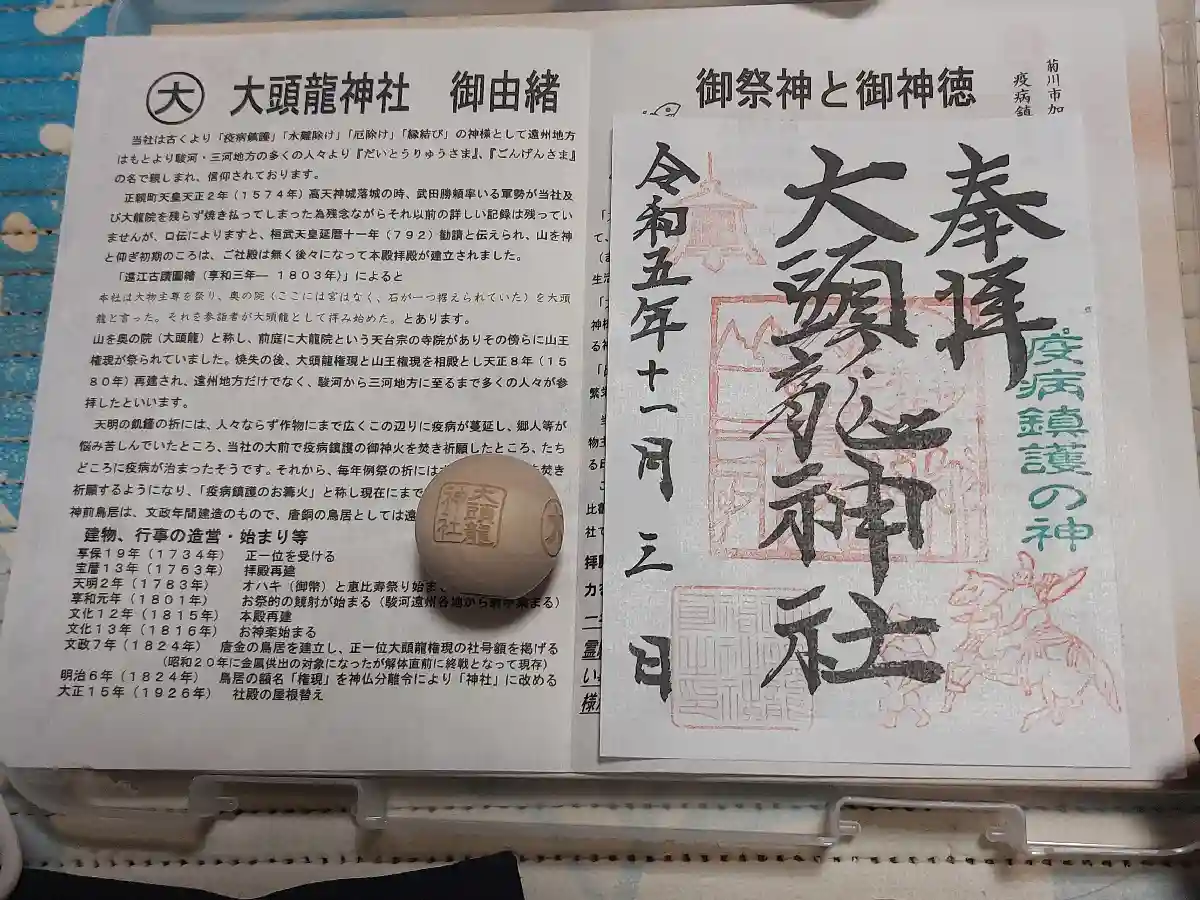 大 大頭龍神社 御由緒
当社は古くより「疫病鎮護」「水難除け」「厄除け」「縁結び」の神様として遠州地方
はもとより駿河・三河地方の多くの人々より『だいとうりゅうさま』、『ごんげんさま』
の名で親しまれ、信仰されております。
正親町天皇天正2年(1574年)高天神城落城の時、武田勝頼率いる軍勢が当社及
び大龍院を残らず焼き払ってしまった為残念ながらそれ以前の詳しい記録は残ってい
ませんが、口伝によりますと、桓武天皇延暦十一年(792)勧請と伝えられ、山を神
と仰ぎ初期のころは、ご社殿は無く後々になって本殿拝殿が建立されました。
「遠江古蹟圖繪(享和三年― 1803年)」によると
本社は大物主尊を祭り、奥の院(ここには宮はなく、石が一つ据えられていた)を大頭
龍と言った。それを参詣者が大頭龍として拝み始めた。とあります。
山を奥の院(大頭龍)と称し、前庭に大龍院という天台宗の寺院がありその傍らに山王
権現が祭られていました。焼失の後、大頭龍権現と山王権現を相殿とし天正8年(15
80年)再建され、遠州地方だけでなく、駿河から三河地方に至るまで多くの人々が参
拝したといいます。
天明の飢饉の折には、人々ならず作物にまで広くこの辺りに疫病が蔓延し、郷人等が
悩み苦しんでいたところ、当社の大前で疫病鎮護の御神火を焚き祈願したところ、たち
どころに疫病が治まったそうです。それから、毎年例祭の折には
を焚き
祈願するようになり、「疫病鎮護のお篝火」と称し現在にまで
神前鳥居は、文政年間建造のもので、唐銅の鳥居としては遠
建物、行事の造営・始まり等
享保19年(1734年) 正一位を受ける
宝暦13年(1763年) 拝殿再建
天明2年(1783年) オハキ(御幣)と恵比寿祭り始ま
享和元年(1801年) お祭的の競射が始まる(駿河遠州各地から射手集まる)
文化12年(1815年) 本殿再建
文化13年(1816年) お神楽始まる
文政7年(1824年) 唐金の鳥居を建立し、正一位大頭龍権現の社号額を掲げる
(昭和20年に金属供出の対象になったが解体直前に終戦となって現存)
明治6年(1824年) 鳥居の額名「権現」を神仏分離令により「神社」に改める
大正15年(1926年) 社殿の屋根替え
大頭龍
神社
御祭神と御神徳
菊川市加
疫病鎮
奉拝
疫病鎮護の神
大頭龍神社
令和五年十一月三日